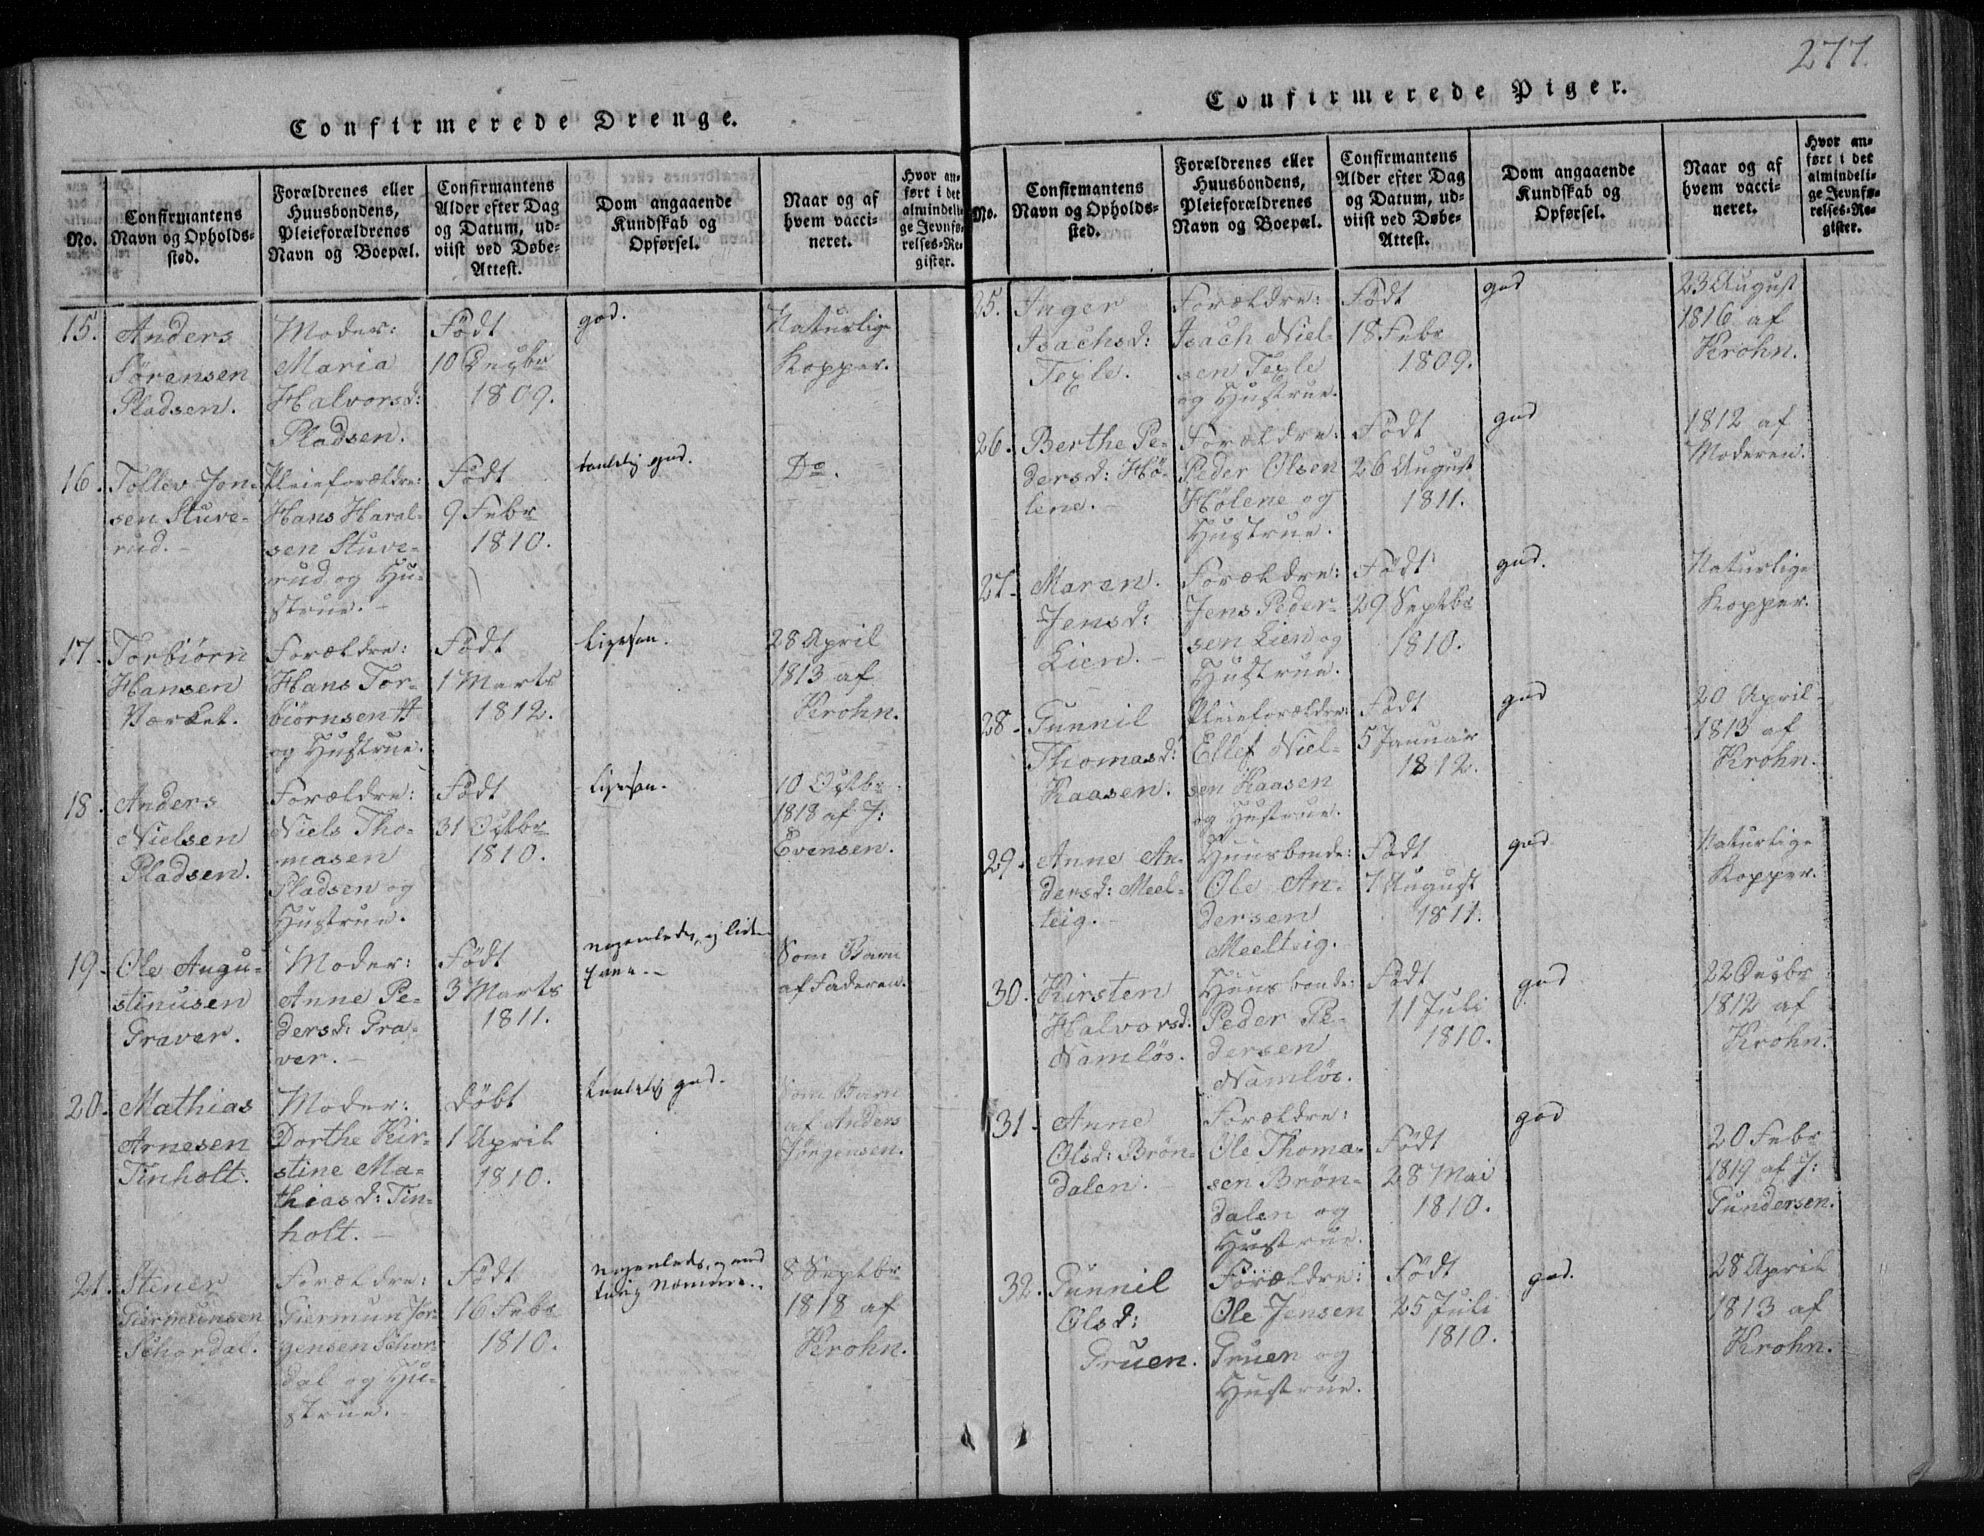 277.
Confirmerede Drenge.
No.
Confirmantens
Navn og Opholds-
sted.
Forældrenes eller
Huusbondens,
Pleieforældrenes
Navn og Boepæl.
Confirmantens
Alder efter Dag
og Datum, ud-
viist ved Døbe-
Attest.
Dom angaaende
Kundskab og
Opførsel.
Naar og af
hvem vacci-
neret.
Hvor an-
ført i det
almindeli-
ge Jevnfø-
relses-Re-
gister.
15.
Anders
Sørensen
Pladsen.
Moder:
Maria
Halvorsd:
Pladsen.
Født
10 Decbr
1809.
god.
Naturlige
Kopper.
16.
Tollev Jon-
sen Stuve-
rud.-
Pleieforældre:
Hans Haral-
sen Stuve-
rud og Hu-
strue.-
Født
9 Febr
1810.
taalelig god.
Do.
17.
Torbiørn
Hansen
Værket.
Forældre:
Hans Tor-
biørnsen
og Hustrue.
Født
1 Marts
1812.
ligesaa.
28 April
1813 af
Krohn.
18.
Anders
Nielsen
Pladsen.
Forældre:
Niels Tho-
masen
Pladsen og
Hustrue.
Født
31 Octbr
1810.
ligesaa.
10 Octbr
1818 af J:
Evensen.
19.
Ole Augu-
stinusen
Graver.
Moder:
Anne Pe-
dersd: Gra-
ver.-
Født
3 Marts
1811.
nogenledes, og
Som Barn
af Faderen.
20.
Mathias
Arnesen
Tinholt.
Moder:
Dorthe Kir-
stine Ma-
thiasd: Tin-
holt.-
døbt
1 April
1810.
taalelig god.
Som Barn
af Anders
Jørgensen.
21.
Stener
Giermunsen
Schordal.
Forældre:
Giermun Jør-
gensen Schor-
dal og Hu-
strue.
Født
16 Febr
1810.
nogenledes, og
8 Septbr
1818 af
Krohn.
Confirmerede Piger.
No.
Confirmantens
Navn og Opholds-
sted.
Forældrenes eller
Huusbondens,
Pleieforældrenes
Navn og Boepæl.
Confirmantens
Alder efter Dag
og Datum, ud-
viist ved Døbe-
Attest.
Dom angaaende
Kundskab og
Opførsel.
Naar og af
hvem vacci-
neret.
Hvor an-
ført i det
almindeli-
ge Jevnfø-
relses-Re-
gister.
25.
Inger
Isachsd:
Texle.
Forældre:
Isach Niel-
sen Texle
og Hustrue.
Født
18 Febr
1809.
god
23 August
1816 af
Krohn.
26.
Berthe Pe-
dersd: Hø-
lene.-
Forældre:
Peder Olsen
Hølene og
Hustrue.
Født
26 August
1811.
god
1812 af
Moderen.
27.
Maren
Jensd:
Lien.-
Forældre:
Jens Peder-
sen Lien og
Hustrue.
Født
29 Septbr
1810.
god.
Naturlige
Kopper.
28.
Gunnil
Thomasd:
Kaasen.
Pleieforældre:
Ellef Niel-
sen Kaasen
og Hustrue.
Født
5 Januar
1812.
god
20 April
1813 af
Krohn.
29.
Anne An-
dersd: Meel-
teig.-
Huusbonde:
Ole An-
dersen
Meelteig.
Født
7 August
1811.
god
Naturlige
Kopper.
30.
Kirsten
Halvorsd:
Namløs.
Huusbonde:
Peder Pe-
dersen
Namløs.
Født
11 Juli
1810.
god
22 Decbr
1812 af
Krohn.
31.
Anne
Olsd: Brøn-
dalen.-
Forældre:
Ole Thoma-
sen Brøn-
dalen og
Hustrue.
Født
28 Mai
1810.
god
20 Febr
1819 af J:
Gundersen.
32.
Gunnil
Olsd:
Gruen.
Forældre:
Ole Jensen
Gruen og
Hustrue.
Født
25 Juli
1810.
god.
28 April
1813 af
Krohn.-